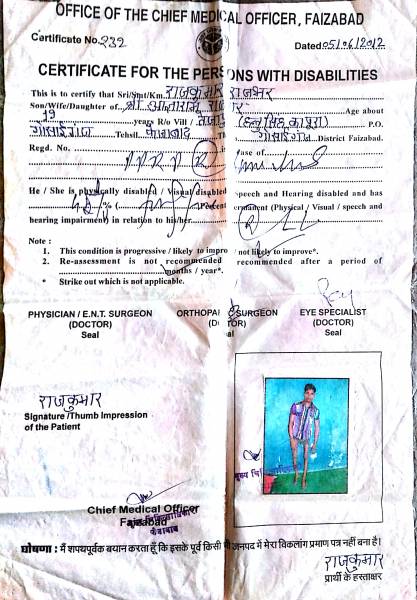 OFFICE OF THE CHIEF MEDICAL OFFICER, FAIZABAD
Certificate No. 232 Dated 05/06/2012
CERTIFICATE FOR THE PERSONS WITH DISABILITIES
This is to certify that Sri/Smt/Km. राजकुमार राजभर
Son/Wife/Daughter of श्री Age about
19 years R/o Vill / P.O.
गोसाईगंज Tehsil. फैजाबाद गोसाईगंज District Faizabad.
Regd. No. case of
He / She is physically disabled / Visual disabled speech and Hearing disabled and has
% ( Percent permanent (Physical / Visual / speech and
hearing impairment) in relation to his/her
Note :
1. This condition is progressive / likely to improve / not likely to improve*.
2. Re-assessment is not recommended recommended after a period of
months / year*.
* Strike out which is not applicable.
PHYSICIAN / E.N.T. SURGEON ORTHOPAEDIC SURGEON EYE SPECIALIST
(DOCTOR) (DOCTOR) (DOCTOR)
Seal Seal Seal
राजकुमार
Signature/Thumb Impression
of the Patient
मुख्य चिकित्सा
Chief Medical Officer
मुख्य चिकित्साधिकारी
Faizabad
फैजाबाद
घोषणा : मैं शपथपूर्वक बयान करता हूँ कि इसके पूर्व किसी भी जनपद में मेरा विकलांग प्रमाण पत्र नहीं बना है।
राजकुमार
प्रार्थी के हस्ताक्षर